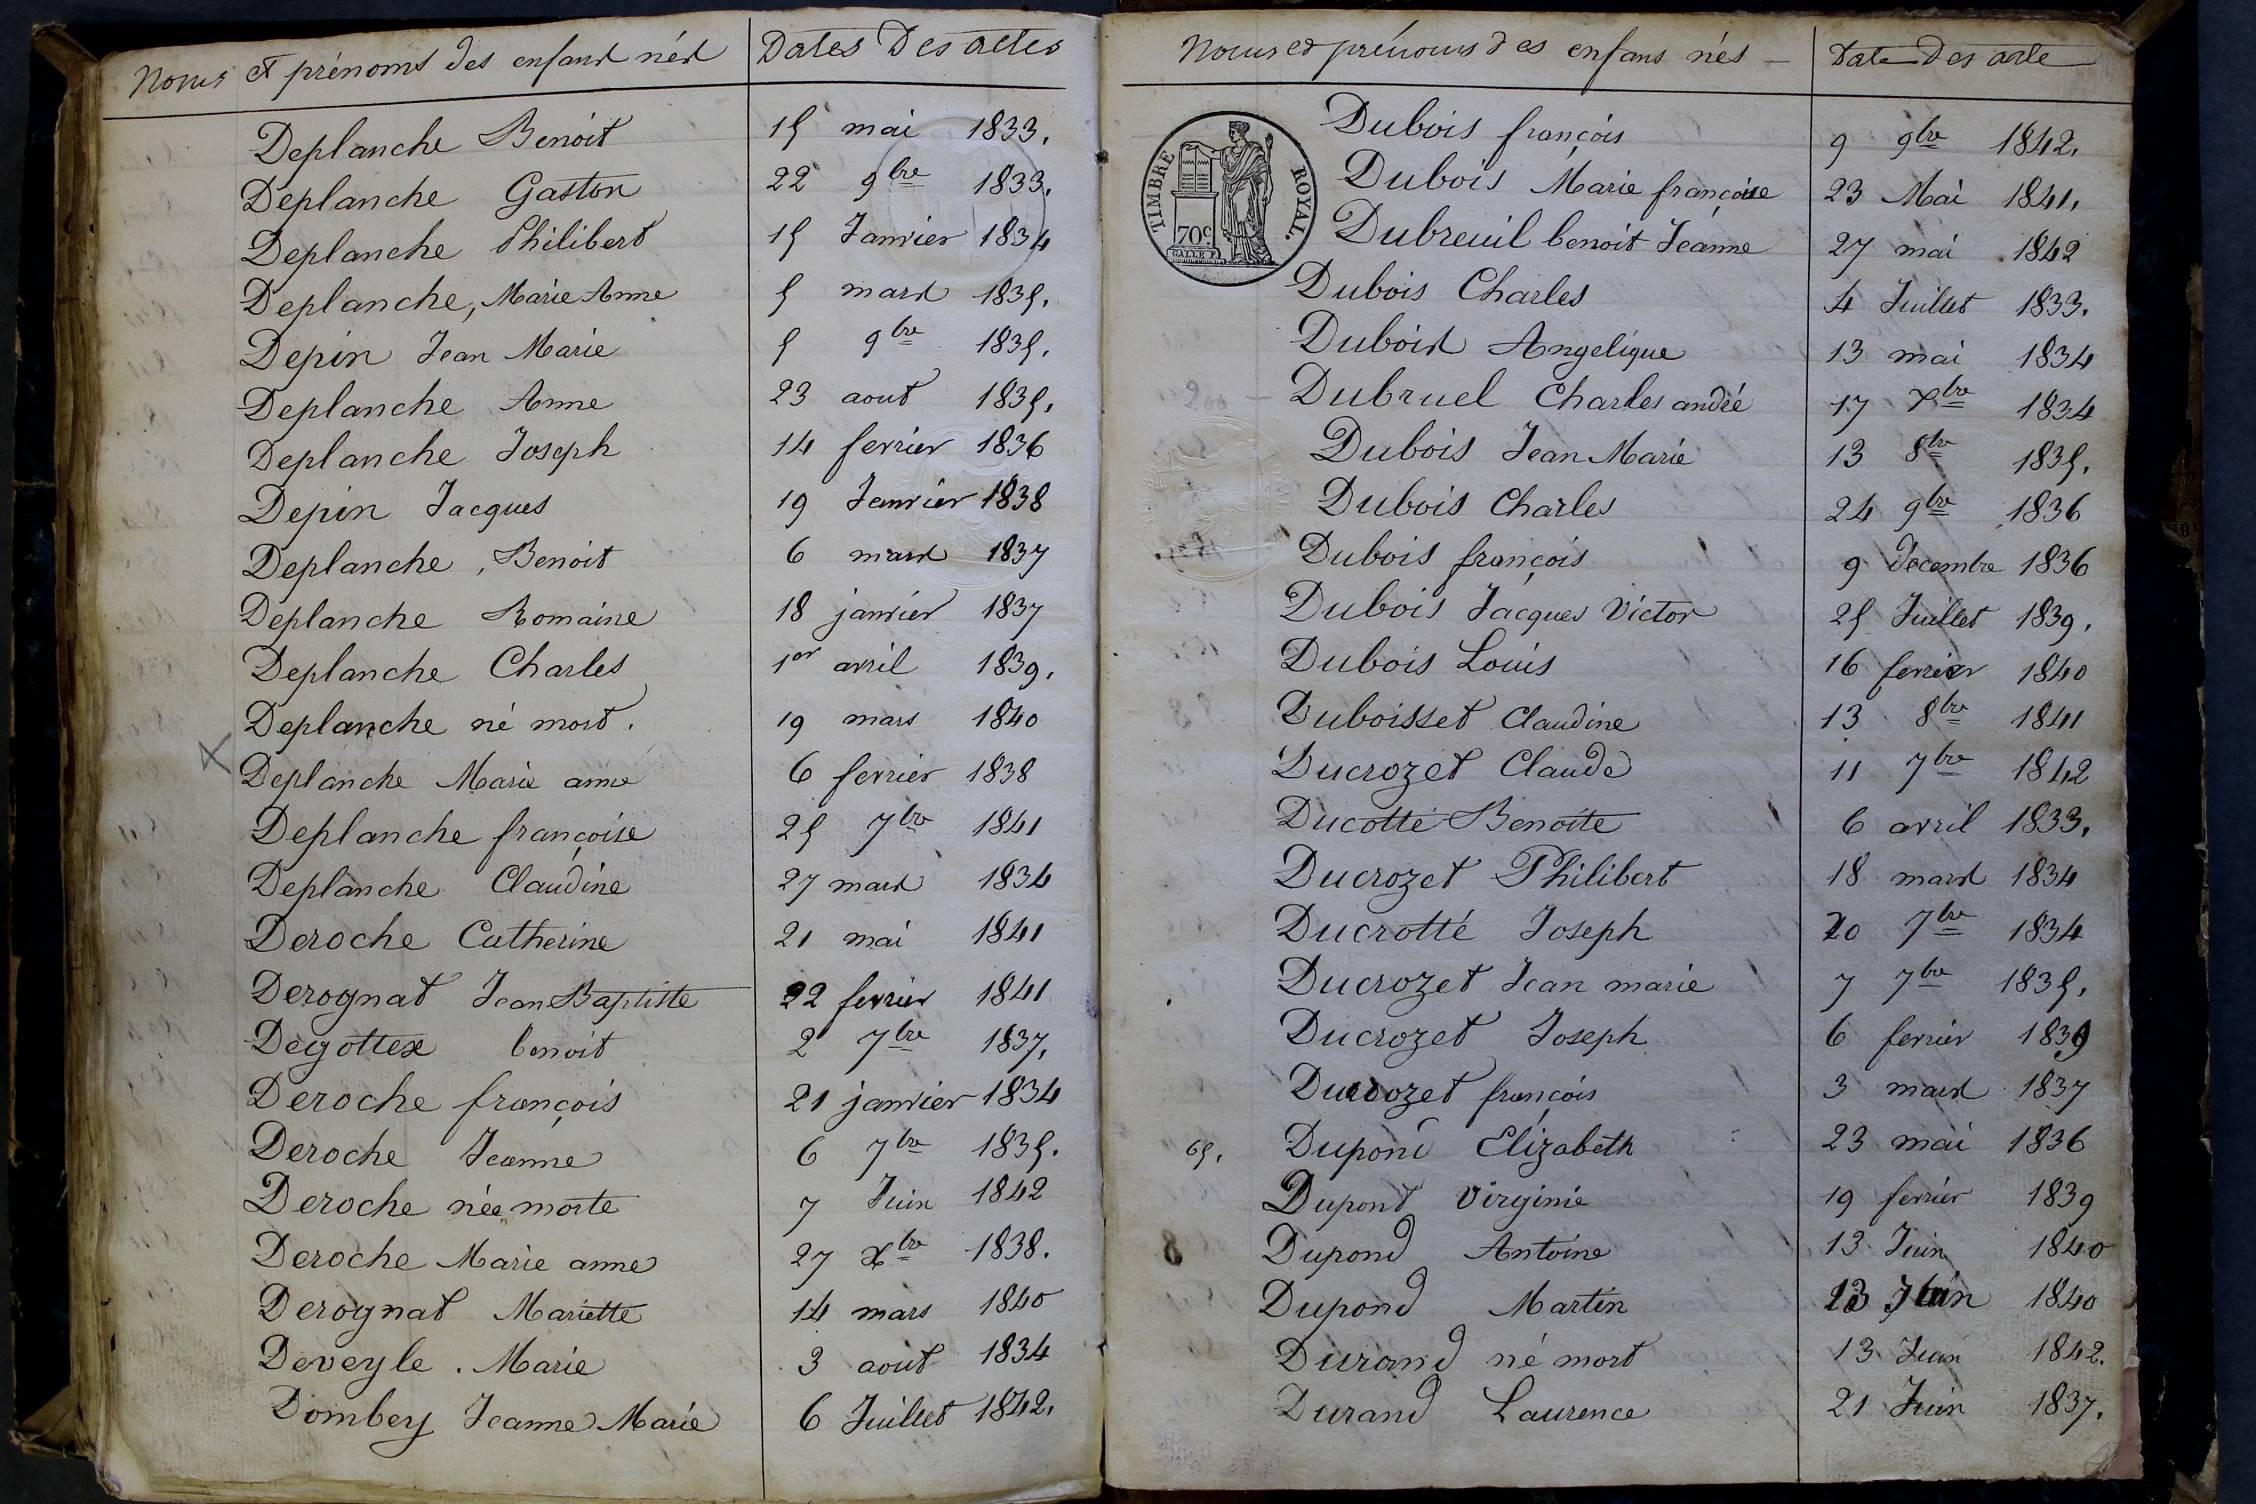 Noms et prénoms des enfans nés Dates Des actes
Deplanche Benoit 15 mai 1833.
Deplanche Gaston 22 9bre 1833.
Deplanche Philibert 15 Janvier 1834
Deplanche, Marie Anne 5 mars 1835.
Depin Jean Marie 5 9bre 1835.
Deplanche Anne 23 aout 1835.
Deplanche Joseph 14 fevrier 1836
Depin Jacques 19 Janvier 1838
Deplanche, Benoit 6 mars 1837
Deplanche Romaine 18 janvier 1837
Deplanche Charles 1er avril 1839.
Deplanche né mort. 19 mars 1840
X Deplanche Marie anne 6 fevrier 1838
Deplanche françoise 25 7bre 1841
Deplanche Claudine 27 mars 1834
Deroche Catherine 21 mai 1841
Derognat Jean Baptiste 22 fevrier 1841
Degottex benoit 2 7bre 1837.
Deroche françois 21 janvier 1834
Deroche Jeanne 6 7bre 1835.
Deroche née morte 7 Juin 1842
Deroche Marie anne 27 Xbre 1838.
Derognat Mariette 14 mars 1840
Deveyle. Marie 3 aout 1834
Dombey Jeanne Marie 6 Juillet 1842.
Noms et prénoms des enfans nés – Date des acte
TIMBRE ROYAL.
70c
GALLE F.
Dubois françois 9 9bre 1842.
Dubois Marie françoise 23 Mai 1841.
Dubreuil benoit Jeanne 27 mai 1842
Dubois Charles 4 Juillet 1833.
Dubois Angelique 13 mai 1834
Dubruel Charles andré 17 Xbre 1834
Dubois Jean Marie 13 8bre 1835.
Dubois Charles 24 9bre 1836
Dubois françois 9 decembre 1836
Dubois Jacques Victor 25 Juillet 1839.
Dubois Louis 16 fevrier 1840
Duboisset Claudine 13 8bre 1841
Ducrozet Claude 11 7bre 1842
Ducotté Benoite 6 avril 1833.
Ducrozet Philibert 18 mars 1834
Ducrotté Joseph 20 7bre 1834
Ducrozet Jean marie 7 7bre 1835.
Ducrozet Joseph 6 fevrier 1839
Ducrozet françois 3 mars 1837
65. Dupond Elizabeth 23 mai 1836
Dupont Virginie 19 fevrier 1839
8 Dupond Antoine 13 Juin 1840
Dupond Martin 13 Juin 1840
Durand né mort 13 Juin 1842.
Durand Laurence 21 Juin 1837.